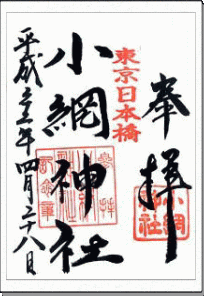 奉拝
東京日本橋
小網神社
小網神社
平成二十三年四月二十八日